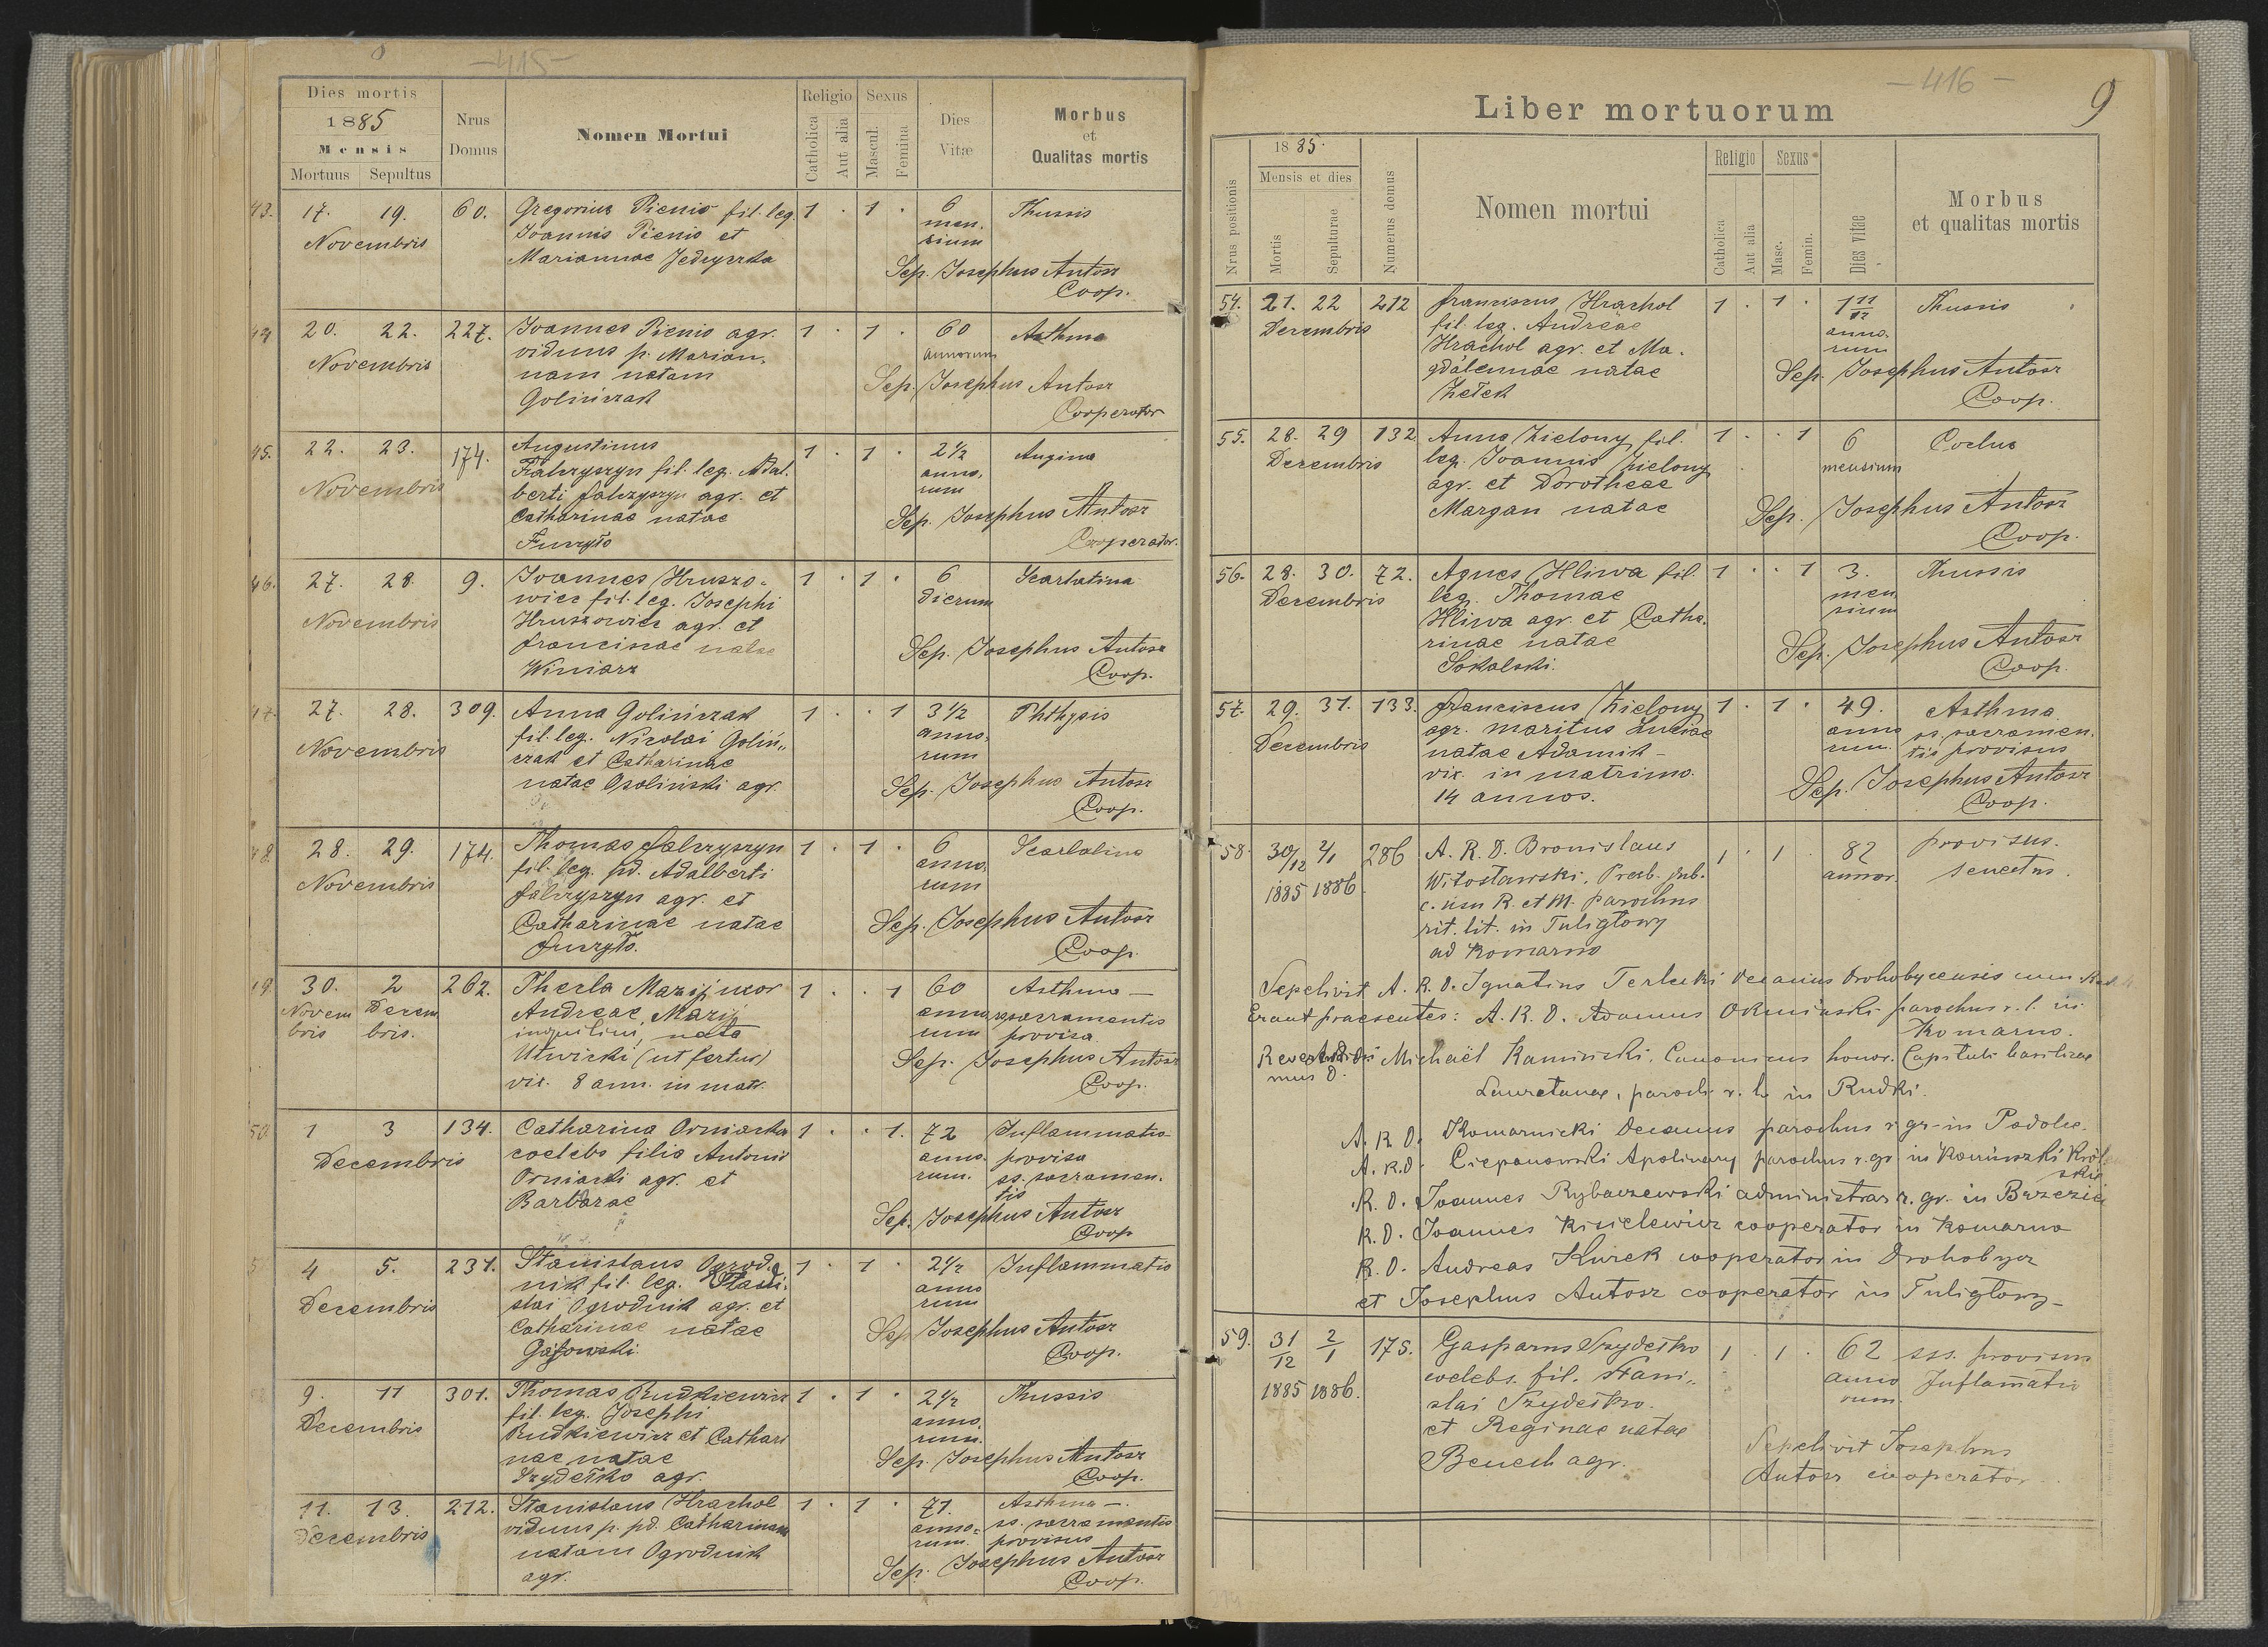 -415-
Dies mortis
1885
Mensis
Mortuus Sepultus
Nrus
Domus
Nomen Mortui
Religio
Catholica
Aut alia
Sexus
Mascul.
Femina
Dies
Vitæ
Morbus
et
Qualitas mortis
43. 17. 19. 60. Gregorius Pienio fil. leg. 1 . 1 . 6 Thussis
Novembris Joannis Pienio et men.
Mariannae Jedryszka sium
Sep. Josephus Antosz
Coop.
44 20. 22. 227. Joannes Pienio agr. 1 . 1 . 60 Asthma
Novembris viduus p. Marian. annorum
nam natam Sep. Josephus Antosz
Golińczak Cooperator
45. 22. 23. 174. Augustinus 1 . 1 . 2½ Angina
Novembris Falczyszyn fil. leg. Adal. anno.
berti Falczyszyn agr. et rum
Catharinae natae Sep. Josephus Antosz
Furgyło Cooperator.
46. 27. 28. 9. Joannes Hruszo- 1 . 1 . 6 Scarlatina
Novembris wicz fil. leg. Josephi dierum
Hruszowicz agr. et
Franciscae natae Sep. Josephus Antosz
Winiarz Coop.
47. 27. 28. 309. Anna Golińczak 1 . . 1 3½ Phthysis
Novembris fil. leg. Nicolai Goliń„ anno.
czak et Catharinae rum
natae Osoliński agr. Sep. Josephus Antosz
Coop.
48 28. 29. 174. Thomas Falczyszyn 1 . 1 . 6 Scarlatina
Novembris fil. leg. pd. Adalberti anno.
Falczyszyn agr. et rum
Catharinae natae Sep. Josephus Antosz
Furgyło. Coop.
49 30. 2 262. Thecla Mazij uxor 1 . . 1 60 Asthma —
Novem Decem Andreae Mazij anno ss. sacramentis
bris bris. inquilini, nata rum provisa
Utwicki (ut fertur) Sep. Josephus Antosz
vix. 8 ann. in matr. Coop.
50. 1 3 134. Catharina Orniaska 1 . . 1. 72 Inflammatio
Decembris coelebs filia Antonii anno. provisa
Orniaski agr. et rum. ss. sacramen.
Barbarae tis
Sep. Josephus Antosz
Coop
5 4 5. 231. Stanislaus Ogrod. 1 . 1 . 2½ Inflammatio
Decembris nik fil. leg. Stani. anno
slai Ogrodnik agr. et rum
Catharinae natae Sep Josephus Antosz
Gajowski. Coop.
9. 11 301. Thomas Rudkiewicz 1 . 1 . 2½ Thussis
Decembris fil. leg. Josephi anno.
Rudkiewicz et Cathari rum.
nae natae Sep. Josephus Antosz
Szydełko agr. Coop.
11. 13. 212. Stanislaus Hrachol 1 . 1 . 71. Asthma —.
Decembris viduus p. pd. Catharinam anno- ss. sacramentis
natam Ogrodnik rum. provisus
agr. Sep. Josephus Antosz
Coop.
-416-
9
Liber mortuorum
Nrus positionis
1885.
Mensis et dies
Mortis
Sepulturae
Numerus domus
Nomen mortui
Religio
Catholica
Aut alia
Sexus
Masc.
Femin.
Dies vitae
Morbus
et qualitas mortis
54. 21. 22 212 Franciscus Hrachol 1 . 1 . 1 11/12 Thussis
Decembris fil. leg. Andreae anno.
Hrachol agr. et Ma. rum
gdalennae natae Sep. Josephus Antosz
Zelek Coop.
55. 28. 29 132 Anna Zielony fil. 1 . . 1 6 Poclus
Decembris leg. Joannis Zielony mensium
agr. et Dorotheae
Margan natae Sep. Josephus Antosz
Coop.
56. 28. 30. 72. Agnes Hliwa fil. 1 . . 1 3. Thussis
Decembris leg. Thomae men
Hliwa agr. et Catha. sium
rinae natae Sep. Josephus Antosz
Sokalski. Coop.
57. 29. 31. 133. Franciscus Zielony 1 . 1 . 49. Asthma
Decembris agr. maritus Luciae anno ss. sacramen.
natae Adamik — rum. tis provisus
vix. in matrimo. Sep. Josephus Antosz
14 annos. Coop.
58. 30/12 2/1 286 A. R. D. Bronislaus 1 . 1 . 82 provisus.
1885 1886. Witosławski, Presb. jub. annor. senectus.
c. usu R. et M. parochus
rit. lit. in Tuligłowy
ad Komarno
Sepelivit A. R. D. Ignatius Terlecki decanus Drohobycensis cum
Erant praesentes: A. R. D. Adamus Okmiński parochus r. l. in
Komarno.
Michaël Kamiński, Canonicus honor. Capituli basilicae
mus D.
Lauretanae, paroch. r. l. in Rudki.
A. R. D. Komarnicki Decanus parochus r. gr. in Podolce.
A. R. D. Ciepanowski Apolinary parochus r. gr. in Koniuszki Króle
skie
R. D. Joannes Rybaczewski administrar r. gr. in Brzezie
R. D. Joannes Kisielewicz cooperator in Komarno
R. D. Andreas Kurek cooperator in Drohobycz
et Josephus Antosz cooperator in Tuligłowy —
59. 31/12 2/1 175. Gasparus Szydełko 1 . 1 . 62 sss. provisus
1885 1886. coelebs. fil. Stani„ anno Inflamatio
slai Szydełko. rum.
et Reginae natae Sepelivit Josephus
Benech agr. Antosz cooperator.